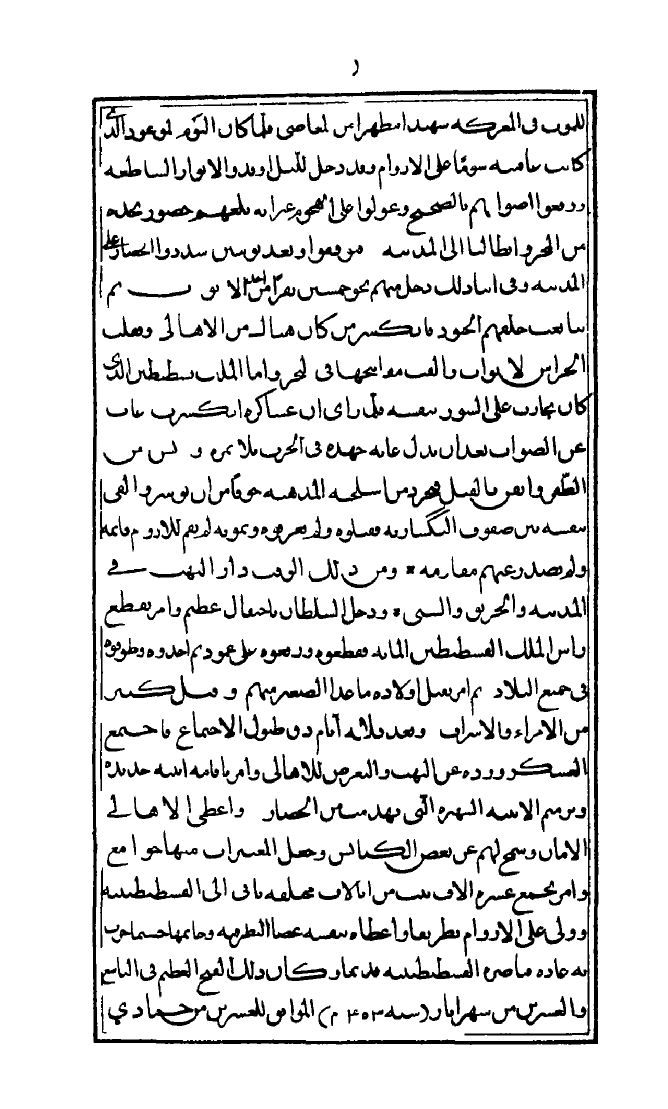 للموت في المعركة شهيدا مطهرا من المعاصي فلما كان اليوم الموعود الذي
كانت عاقبته شوما على الاروام وقد دخل الليل وقدو الانوار الساطعة
ورفعوا اصواتهم بالضجيج وعولوا على الهجوم
من البحر وابطالنا الى المدينة فوقعوا وبعد يومين شددوا الحصار على
المدينة وفي اثناء ذلك دخل منهم نحو خمسين نفرا من الابو ب ثم
تتابعت خلفهم الجنود فانكسر من كان هناك من الاهالي وهلب
الحراس الابواب والقت مفاتيحها في البحر واما الملك قسطنطين الذي
كان يحارب على السور بنفسه فلما راى ان عساكره انكسرت غاب
عن الصواب بعد ان بذل غاية جهده في الحرب بلا ثمرة و يئس من
الظفر وايقن بالقتل فتجرد من اسلحته المذهبة خوفا من ان يوسر والقى
بنفسه بين صفوف الينكشارية فقتلوه ولم يعرفوه وبموته لم يقم للاروام قايمة
ولم تصدر عنهم مقاومة * ومن ذلك الوقت دار النهب في
المدينة والحريق والسبي * ودخل السلطان باحتفال عظيم وامر بقطع
راس الملك القسطنطين المائت فقطعوه ورفعوه على عمود ثم اخذوه وطوفوه
في جميع البلاد ثم امر بقتل اولاده ما عدا الصغير منهم و قتل كثير
من الامراء والاشراف وبعد ثلاثة أيام دق طبول الاجتماع فاجتمع
العسكر ورده عن النهب والتعرض للاهالي وامر باقامة ابنية جديدة
وترميم الابنية الشهيرة التي تهدمت من الحصار واعطى الاهالي
الامان وسمح لهم عن بعض الكنائس وجعل المعتبرات منها جوامع
وامر بجمع عشرة الاف بيت من ايالات مختلفة فاتى الى القسطنطينية
وولى على الاروام بطريقا واعطاه بنفسه عصا البطرقية وخاتمها حسبما جرت
به عادة قياصرة القسطنطينية قديما وكان ذلك الفتح العظيم في التاسع
والعشرين من شهر ايار (سنه ٤٥٣ م) الموافق للعشرين من جمادي